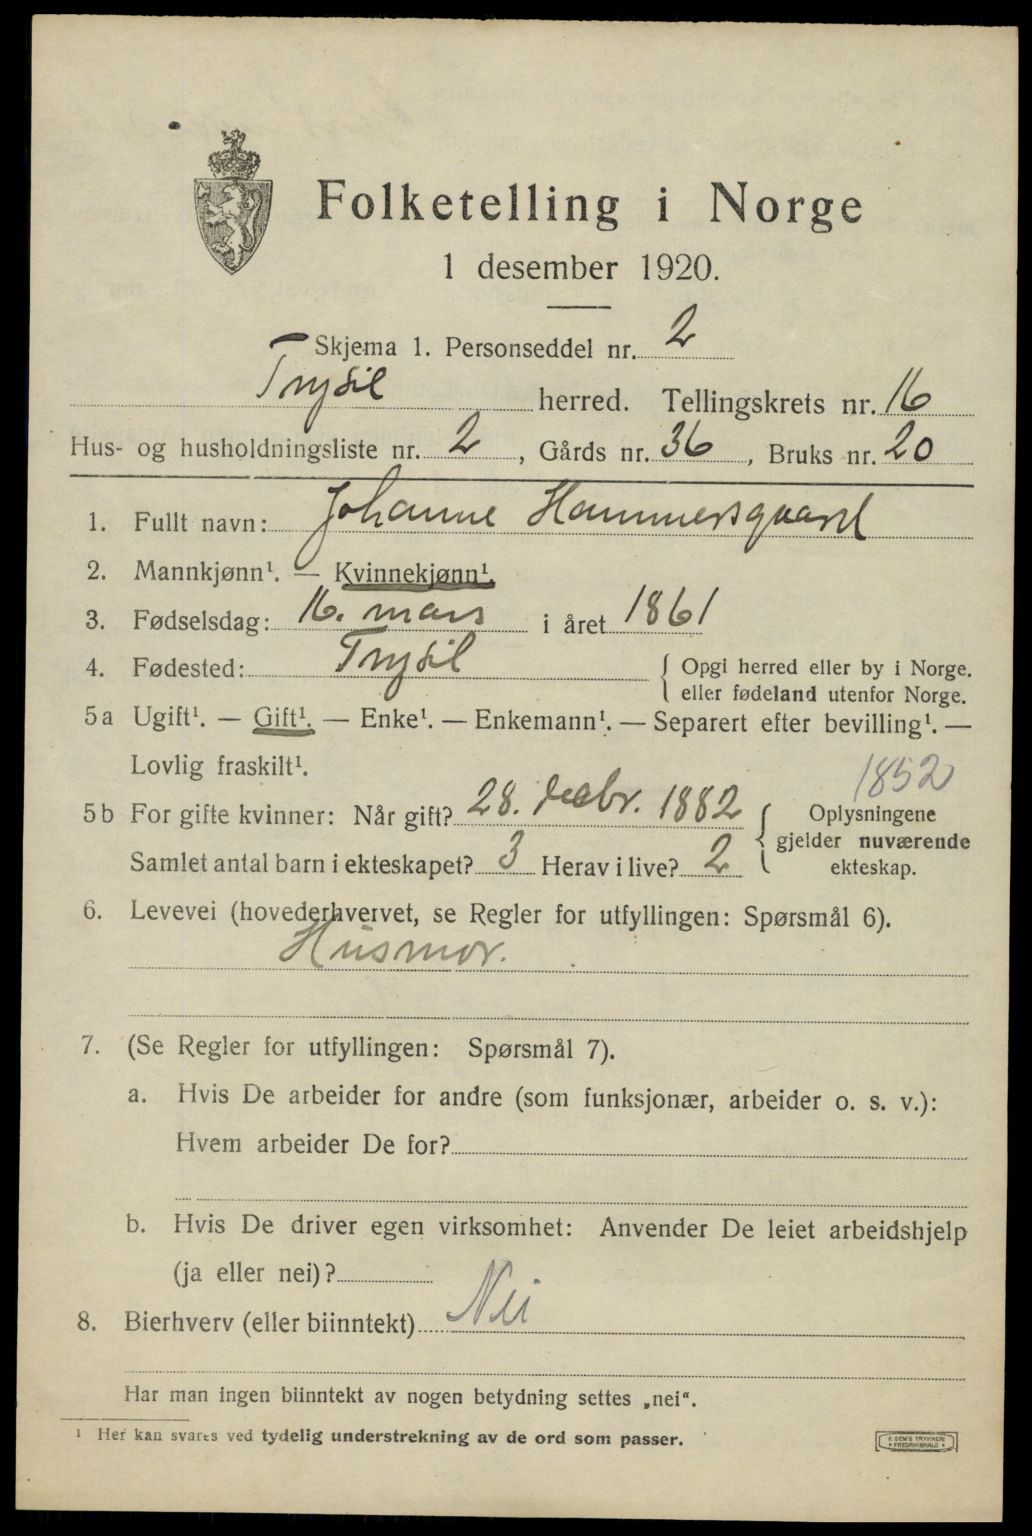 Folketelling i Norge
1 desember 1920.
Skjema 1. Personseddel nr. 2
Trysil herred. Tellingskrets nr. 16
Hus- og husholdningsliste nr. 2, Gårds nr. 36, Bruks nr. 20
1. Fullt navn: Johanne Hammersgaard
2. Mannkjønn¹. — Kvinnekjønn¹.
3. Fødselsdag: 16. mars i året 1861
4. Fødested: Trysil { Opgi herred eller by i Norge.
eller fødeland utenfor Norge.
5a Ugift¹. — Gift¹. — Enke¹. — Enkemann¹. — Separert efter bevilling¹. —
Lovlig fraskilt¹.
1852
5b For gifte kvinner: Når gift? 28. decbr. 1882 { Oplysningene
gjelder nuværende
Samlet antal barn i ekteskapet? 3 Herav i live? 2 ekteskap.
6. Levevei (hovederhvervet, se Regler for utfyllingen: Spørsmål 6).
Husmor.
7. (Se Regler for utfyllingen: Spørsmål 7).
a. Hvis De arbeider for andre (som funksjonær, arbeider o. s. v.):
Hvem arbeider De for?
b. Hvis De driver egen virksomhet: Anvender De leiet arbeidshjelp
(ja eller nei)?
8. Bierhverv (eller biinntekt) Nei
Har man ingen biinntekt av nogen betydning settes „nei“.
¹ Her kan svares ved tydelig understrekning av de ord som passer.
E. SEM'S TRYKKERI
FREDRIKSHALD